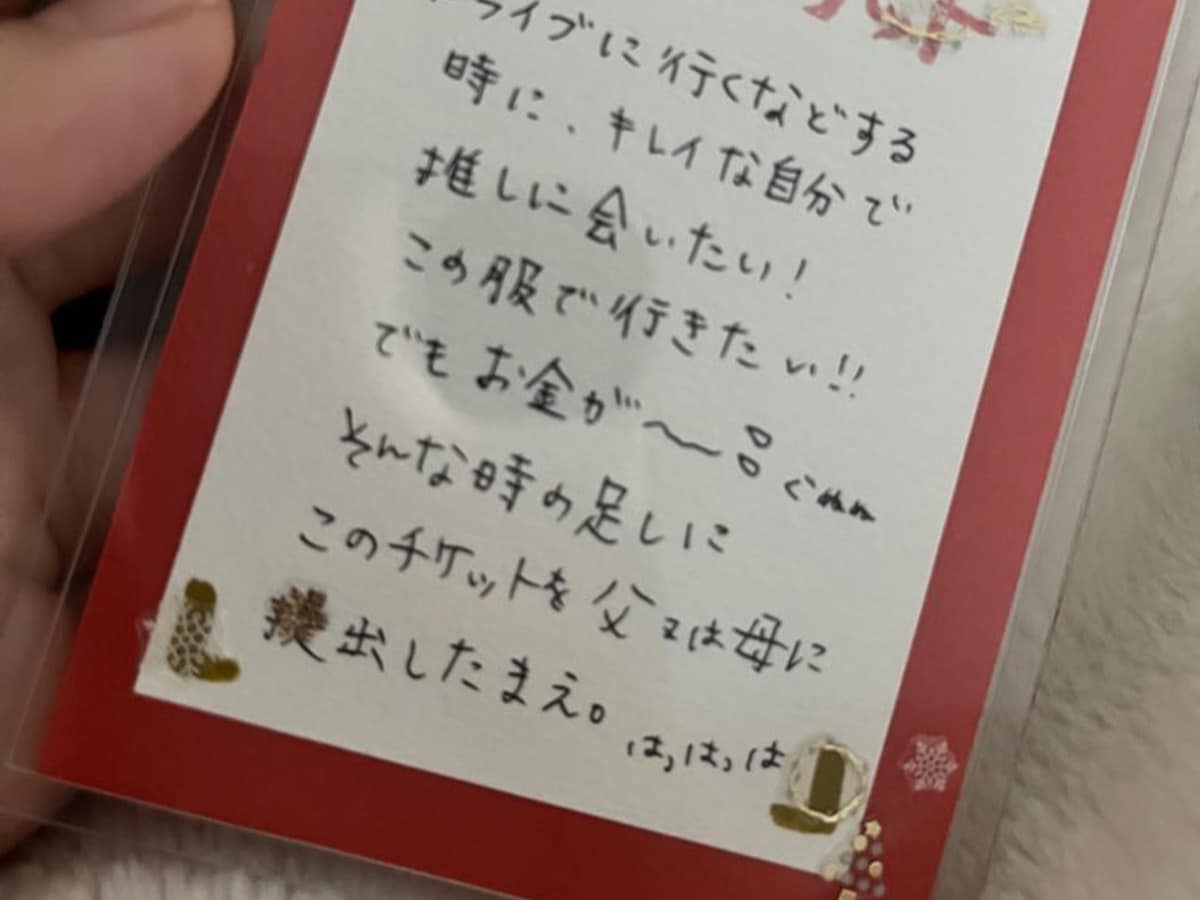 ライブに行くなどする
時に、キレイな自分で
推しに会いたい!
この服で行きたい!!
でもお金が〜 ぐぬぬ
そんな時の足しに
このチケットを父又は母に
提出したまえ。
はっはっは